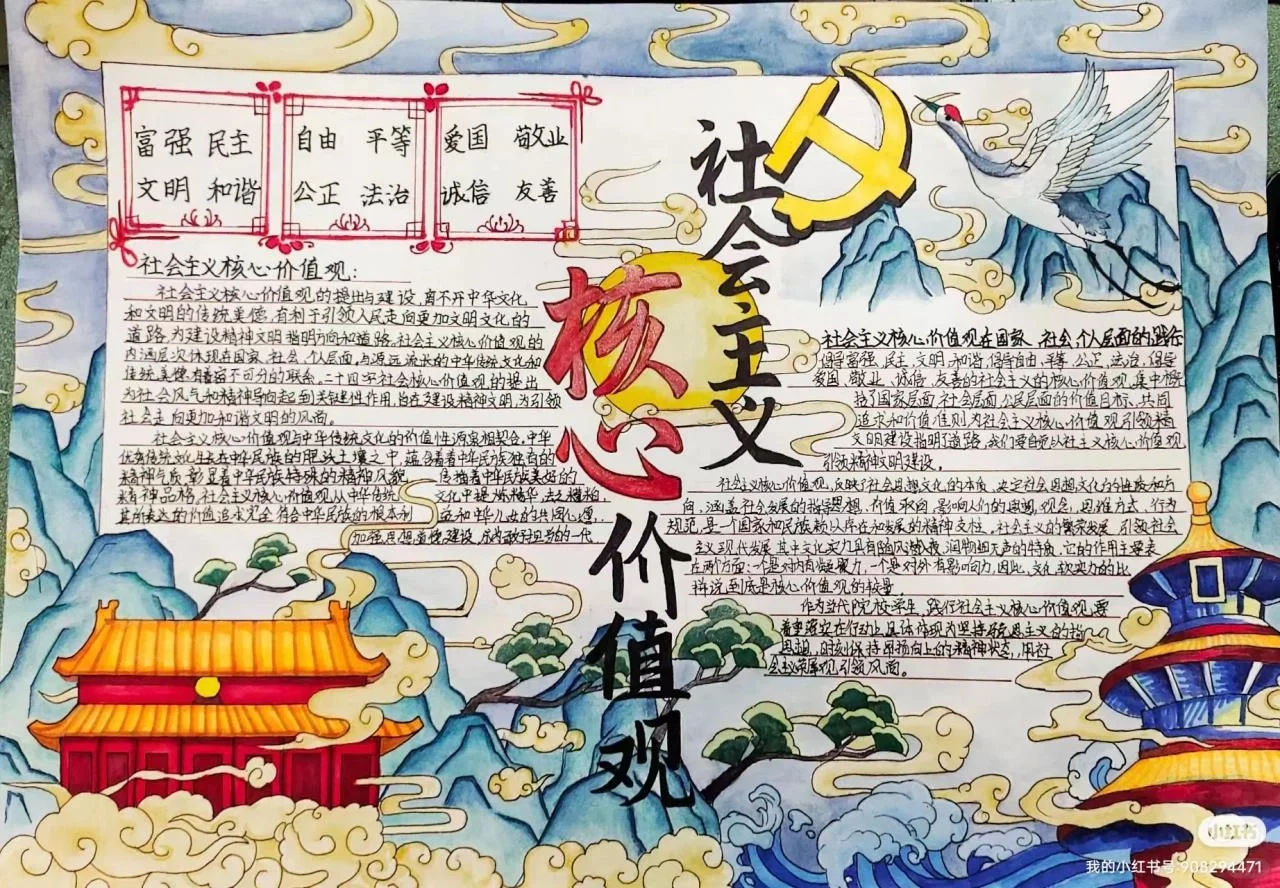 富强 民主
文明 和谐
自由 平等
公正 法治
爱国 敬业
诚信 友善
社会主义
核心价值观
社会主义核心价值观:
社会主义核心价值观的提出与建设,离不开中华文化
和文明的传统美德,有利于引领人民走向更加文明文化的
道路,为建设精神文明指明方向和道路.社会主义核心价值观的
内涵层次体现在国家、社会、个人层面,与源远流长的中华传统文化和
传统美德有着密不可分的联系.二十四字社会核心价值观的提出
为社会风气和精神导向起到关键性作用,旨在建设精神文明,为引领
社会走向更加和谐文明的风面。
社会主义核心价值观与中华传统文化的价值性源泉相契合,中华
优秀传统文化生长在中华民族的肥沃土壤之中,蕴含着着中华民族独有的
精神气质,彰显着中华民族特殊的精神风貌,传播着中华民族美好的
精神品格,社会主义核心价值观从中华传统文化中提炼精华,去之糟粕,
其所表达的价值追求完全符合中华民族的根本利益和中华儿女的共同心愿,
加强思想道德建设,
社会主义核心价值观在国家、社会、个人层面的践行
倡导富强、民主、文明、和谐,倡导自由、平等、公正、法治,倡导
爱国、敬业、诚信、友善的社会主义的核心价值观,集中概
括了国家层面、社会层面、公民层面的价值目标、共同
追求和价值准则,为社会主义核心价值观引领精
文明建设指明了道路,我们要自觉以社会主义核心价值观
引领精神文明建设。
社会主义核心价值观,反映了社会思想文化的本质,决定社会思想文化的性质和方
向,涵盖社会发展的指导思想、价值取向,影响人们的思想、观念、思维方式、行为
规范,是一个国家和民族赖以存在和发展的精神支柱。社会主义的繁荣发展,引领社会
主义现代发展,其中文化实力具有随风潜夜,润物细无声的特质,它的作用主要表
在两个方面:一个是对内有凝聚力,一个是对外有影响力,因此,文化软实力的比
拼说到底是核心价值观的较量。
作为当代院校学生,践行社会主义核心价值观,要
着重落实在行动上,具体体现为坚持马克思主义的指
思想,时刻保持昂扬向上的精神状态,用社
会主义荣辱观引领风面。
小红书
我的小红书号:908294471